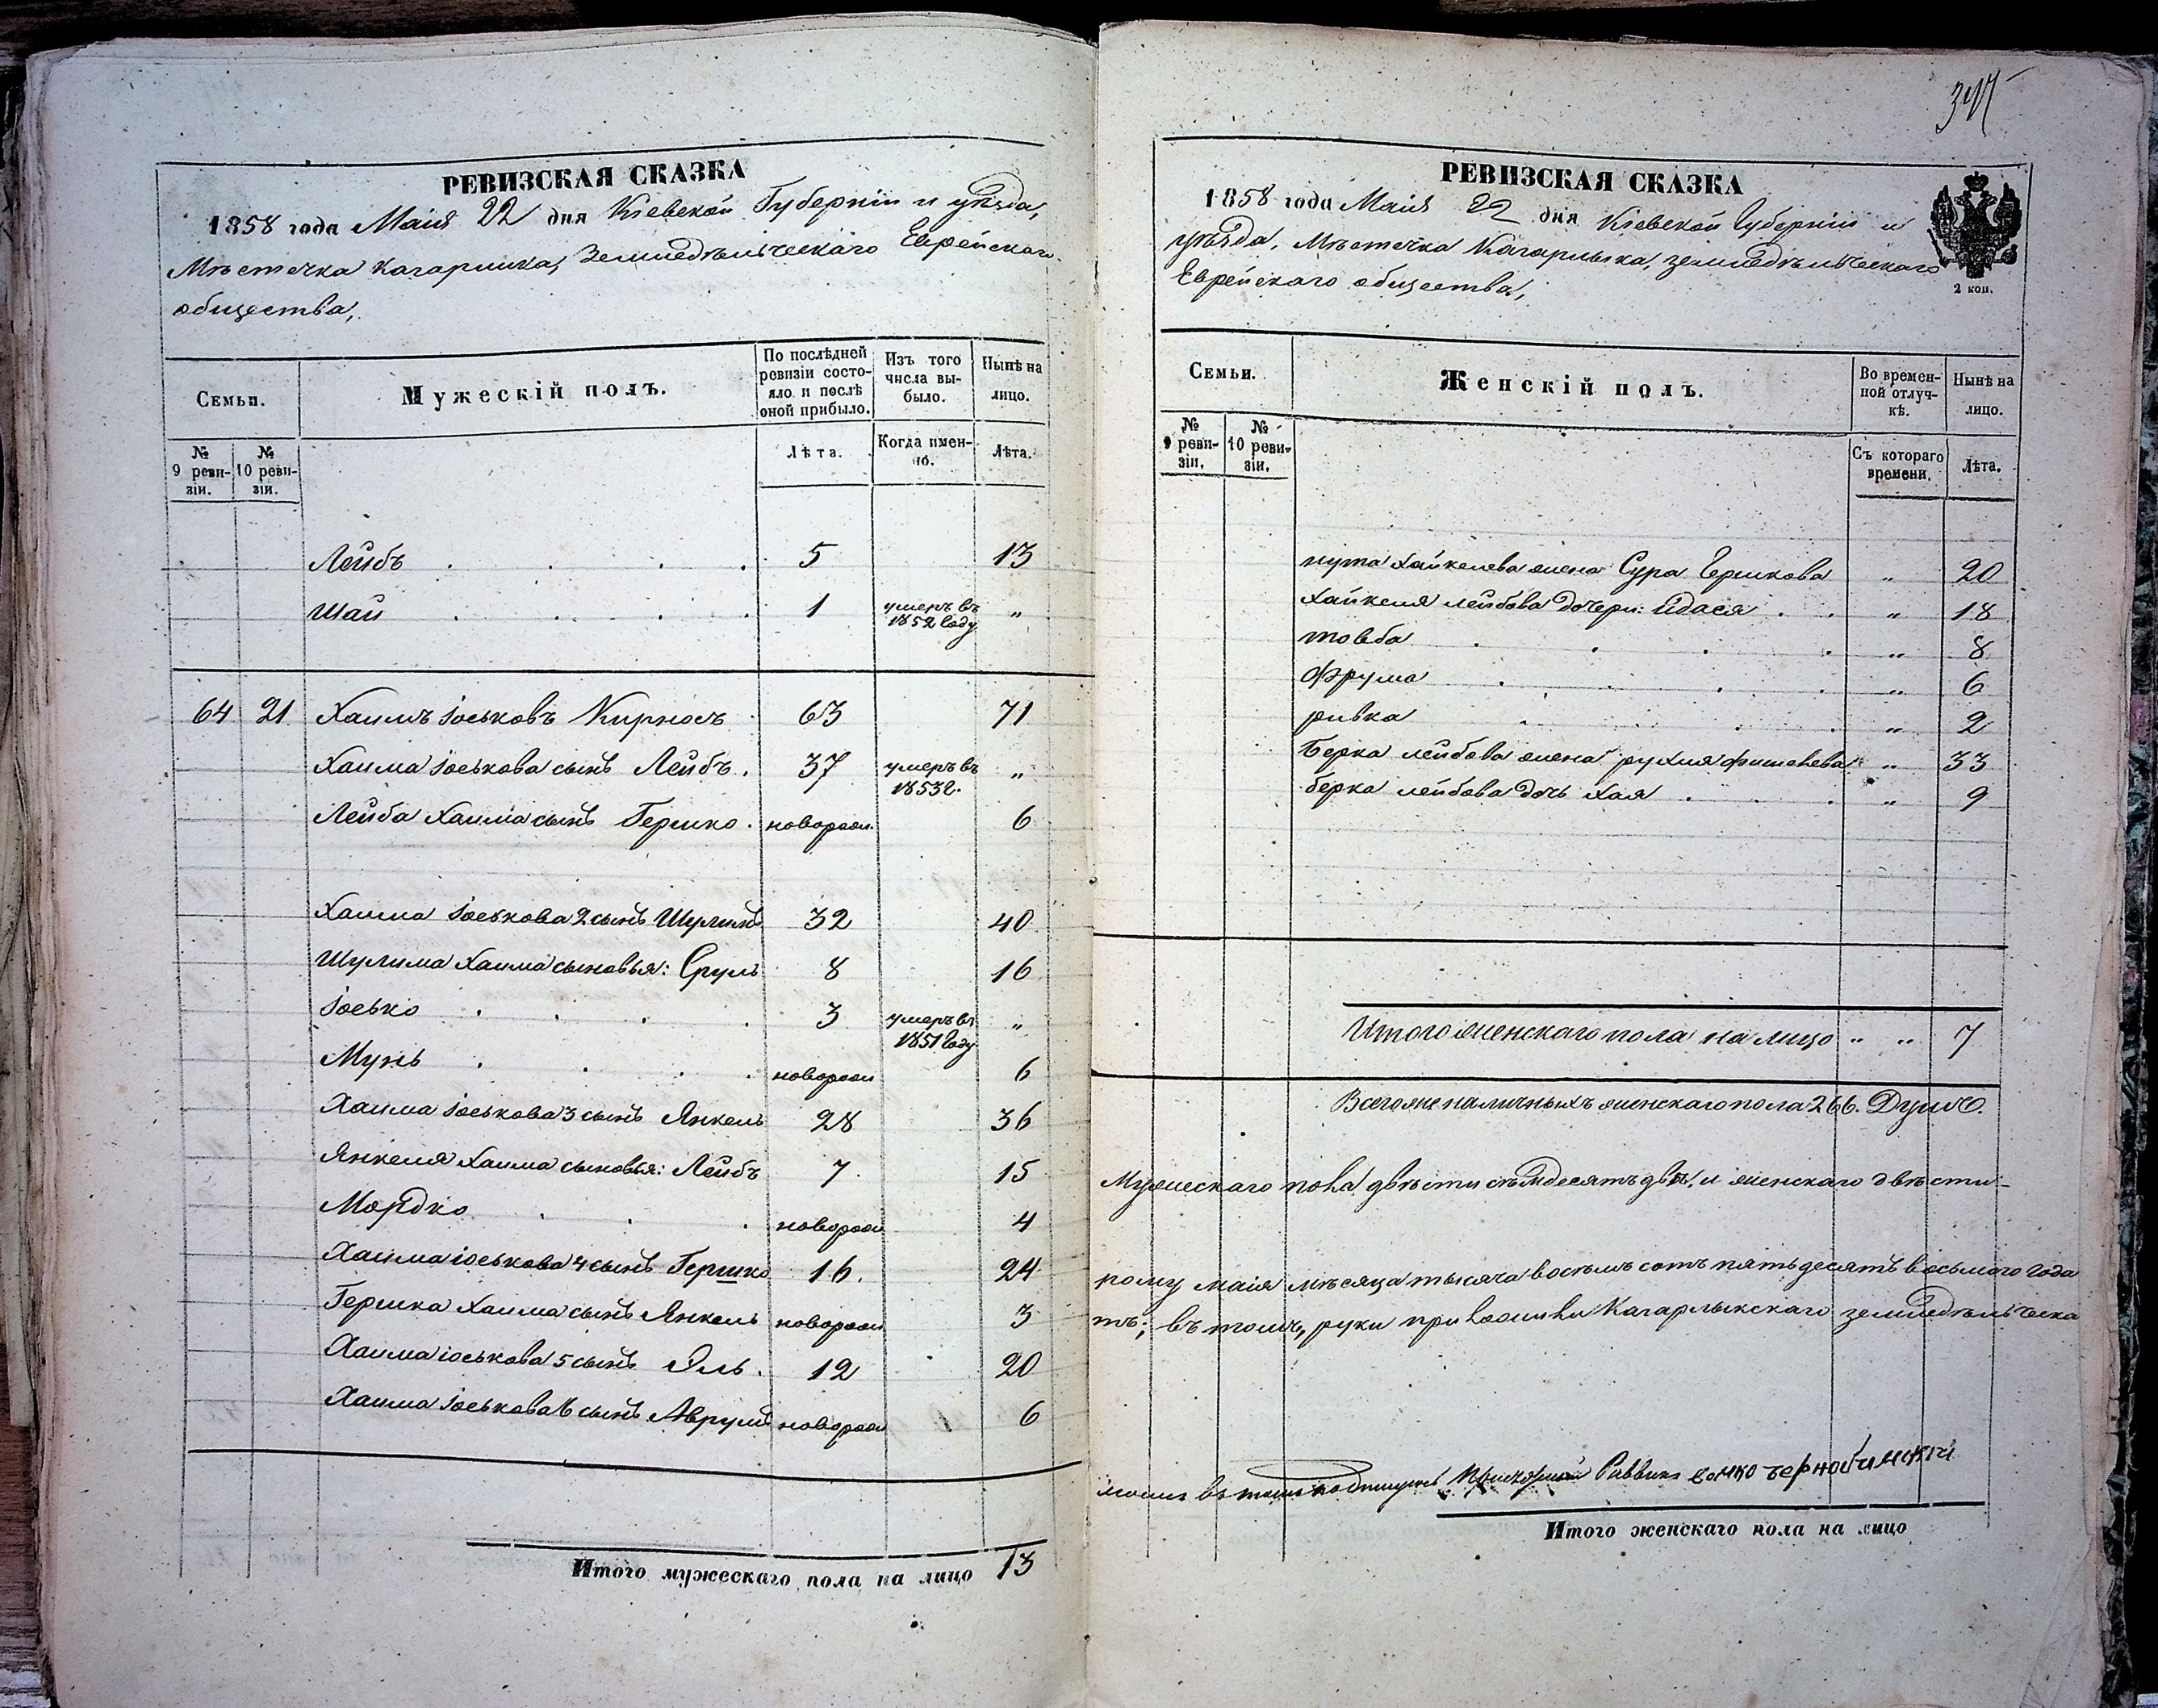 РЕВИЗСКАЯ СКАЗКА
1858 года Маія 22 дня Кіевской Губерніи и уѣзда,
Мѣстечка Кагарлика, Земледѣльческаго Еврейскаго
общества,
Семьи.
Мужескій полъ.
По послѣдней ревизіи состояло и послѣ оной прибыло.
Изъ того числа выбыло.
Нынѣ на лицо.
№ 9 ревизіи.
№ 10 ревизіи.
Лѣта.
Когда именно.
Лѣта.
Лейбъ 5 13
Шай 1 умеръ въ 1852 году „
64 21 Хаимъ Іоськовъ Кирносъ 63 71
Хаима Іоськова сынъ Лейбъ. 37 умеръ въ 1853 г. „
Лейба Хаима сынъ Гершко. поворож. 6
Хаима Іоськова 2 сынъ Шулимъ 32 40
Шулима Хаима сыновья: Сруль 8 16
Іосько 3 умеръ въ 1851 году „
Мунь новорож 6
Хаима Іоськова 3 сынъ Янкель 28 36
Янкеля Хаима сыновья: Лейбъ 7 15
Мордко новорож 4
Хаима іоськова 4 сынъ Гершко 16. 24
Гершка Хаима сынъ Янкель новорож 3
Хаима іоськова 5 сынъ Эль. 12 20
Хаима Іоськова 6 сынъ Аврумъ новорож 6
Итого мужескаго пола на лицо 13
РЕВИЗСКАЯ СКАЗКА
1858 года Маія 22 дня Кіевской Губерніи и
уѣзда, Мѣстечка Кагарлыка, земледѣльческаго
Еврейскаго общества,
2 коп.
Семьи.
Женскій полъ.
Во временной отлучкѣ.
Нынѣ на лицо.
№ 9 ревизіи.
№ 10 ревизіи.
Съ котораго времени.
Лѣта.
нута Хайкелева жена Сура Гершкова „ 20
Хайкеля лейбова дочери: Идася „ 18
товба „ 8
Фрума „ 6
ривка „ 2
Берка лейбова жена рухля фишелева „ 33
берка лейбова дочь Хая „ 9
Итого женскаго пола на лицо „ „ 7
Всего же наличныхъ женскаго пола 266. Душъ.
Мужескаго пола двѣсти семдесятъ двѣ, и женскаго двѣсти-
рому маія мѣсяца тысяча восемь сотъ пятьдесятъ восьмого года
тъ; въ томъ, руки приложили Кагарлыкскаго земледѣльческа
въ томъ подпишусь Раввинъ
Итого женскаго пола на лицо